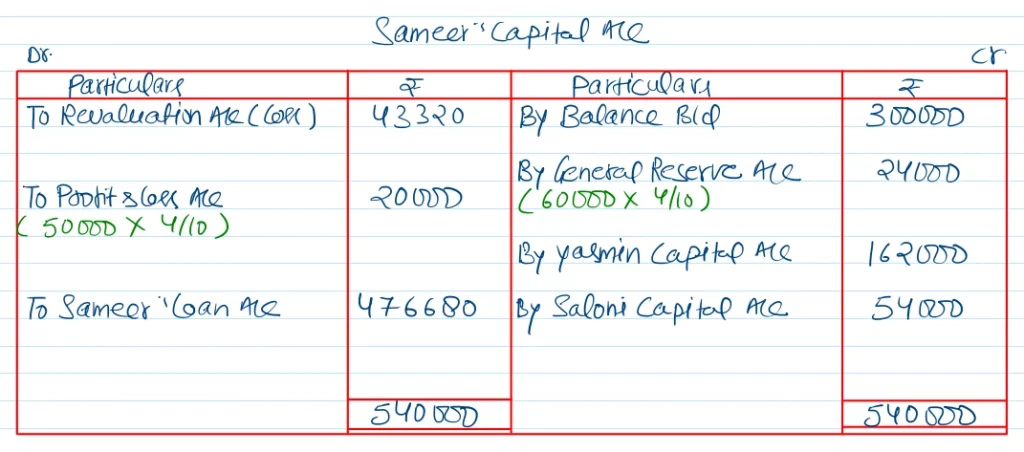 Sameer's Capital A/c
Dr. Cr
Particulars ₹ Particulars ₹
To Revaluation A/c (Loss) 43320 By Balance B/d 300000
By General Reserve A/c 24000
To Profit & Loss A/c 20000 (60000 X 4/10)
(50000 X 4/10)
By Yasmin Capital A/c 162000
To Sameer's Loan A/c 476680 By Saloni Capital A/c 54000
540000 540000